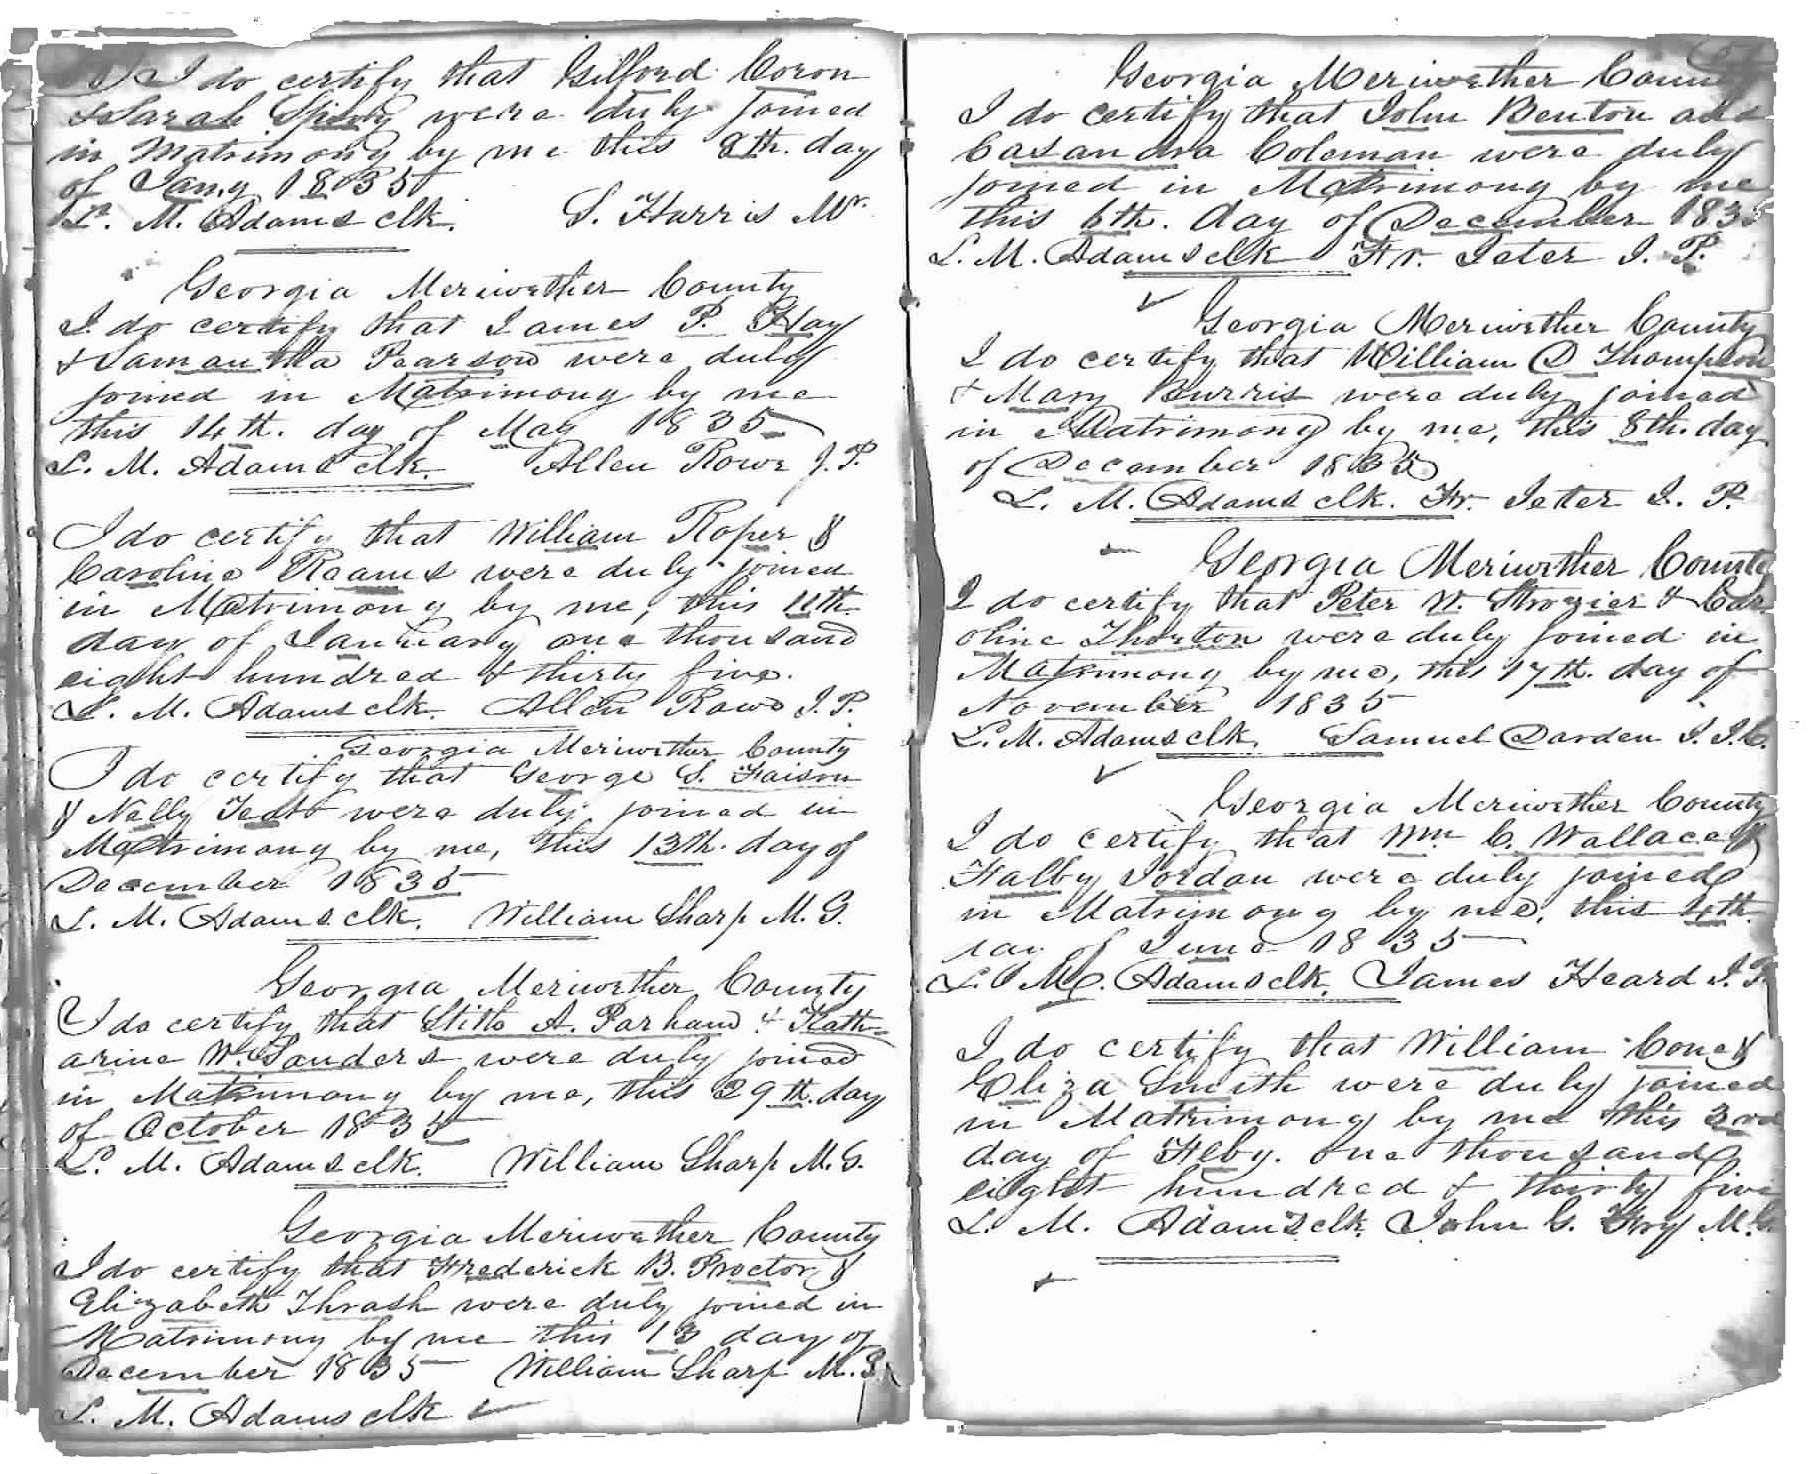 I do certify that Gilford Coron
& Sarah Spivey were duly joined
in Matrimony by me this 8th. day
of Jany 1835
L. M. Adams clk. S. Harris Mr.
Georgia Meriwether County
I do certify that James P. Hay
& Samantha Pearson were duly
joined in Matrimony by me
this 14th. day of May 1835
L. M. Adams clk. Allen Rowe J. P.
I do certify that William Roper &
Caroline Reams were duly joined
in Matrimony by me, this 11th
day of January one thousand
eight hundred & thirty five.
L. M. Adams clk. Allen Rowe J. P.
Georgia Meriwether County
I do certify that George S. Faison
& Nelly were duly joined in
Matrimony by me, this 13th. day of
December 1835
L. M. Adams clk. William Sharp M. G.
Georgia Meriwether County
I do certify that Stith A. Parham & Kath-
arine W. Sanders were duly joined
in Matrimony by me, this 29th. day
of October 1835
L. M. Adams clk. William Sharp M. G.
Georgia Meriwether County
I do certify that Frederick B. Proctor &
Elizabeth Thrash were duly joined in
Matrimony by me this 13 day of
December 1835 William Sharp M. G.
L. M. Adams clk
Georgia Meriwether County
I do certify that John Benton and
Casandra Coleman were duly
joined in Matrimony by me
this 6th. day of December 1835
L. M. Adams clk Fr. Jeter J. P.
Georgia Meriwether County
I do certify that William D Thompson
& Mary Burris were duly joined
in Matrimony by me, this 8th. day
of December 1835
L. M. Adams clk. Fr. Jeter J. P.
Georgia Meriwether County
I do certify that Peter W. Strozier & Car
oline Thorton were duly joined in
Matrimony by me, this 17th. day of
November 1835
L. M. Adams clk. Samuel Darden J. I. C.
Georgia Meriwether County
I do certify that Wm C. Wallace &
Falby Jordan were duly joined
in Matrimony by me, this 4th.
day of June 1835
L. M. Adams clk. James Heard J. P.
I do certify that William Cone &
Eliza Smith were duly joined
in Matrimony by me this 3rd
day of Feby. one thousand
eight hundred & thirty five
L. M. Adams clk. John G. M. G.